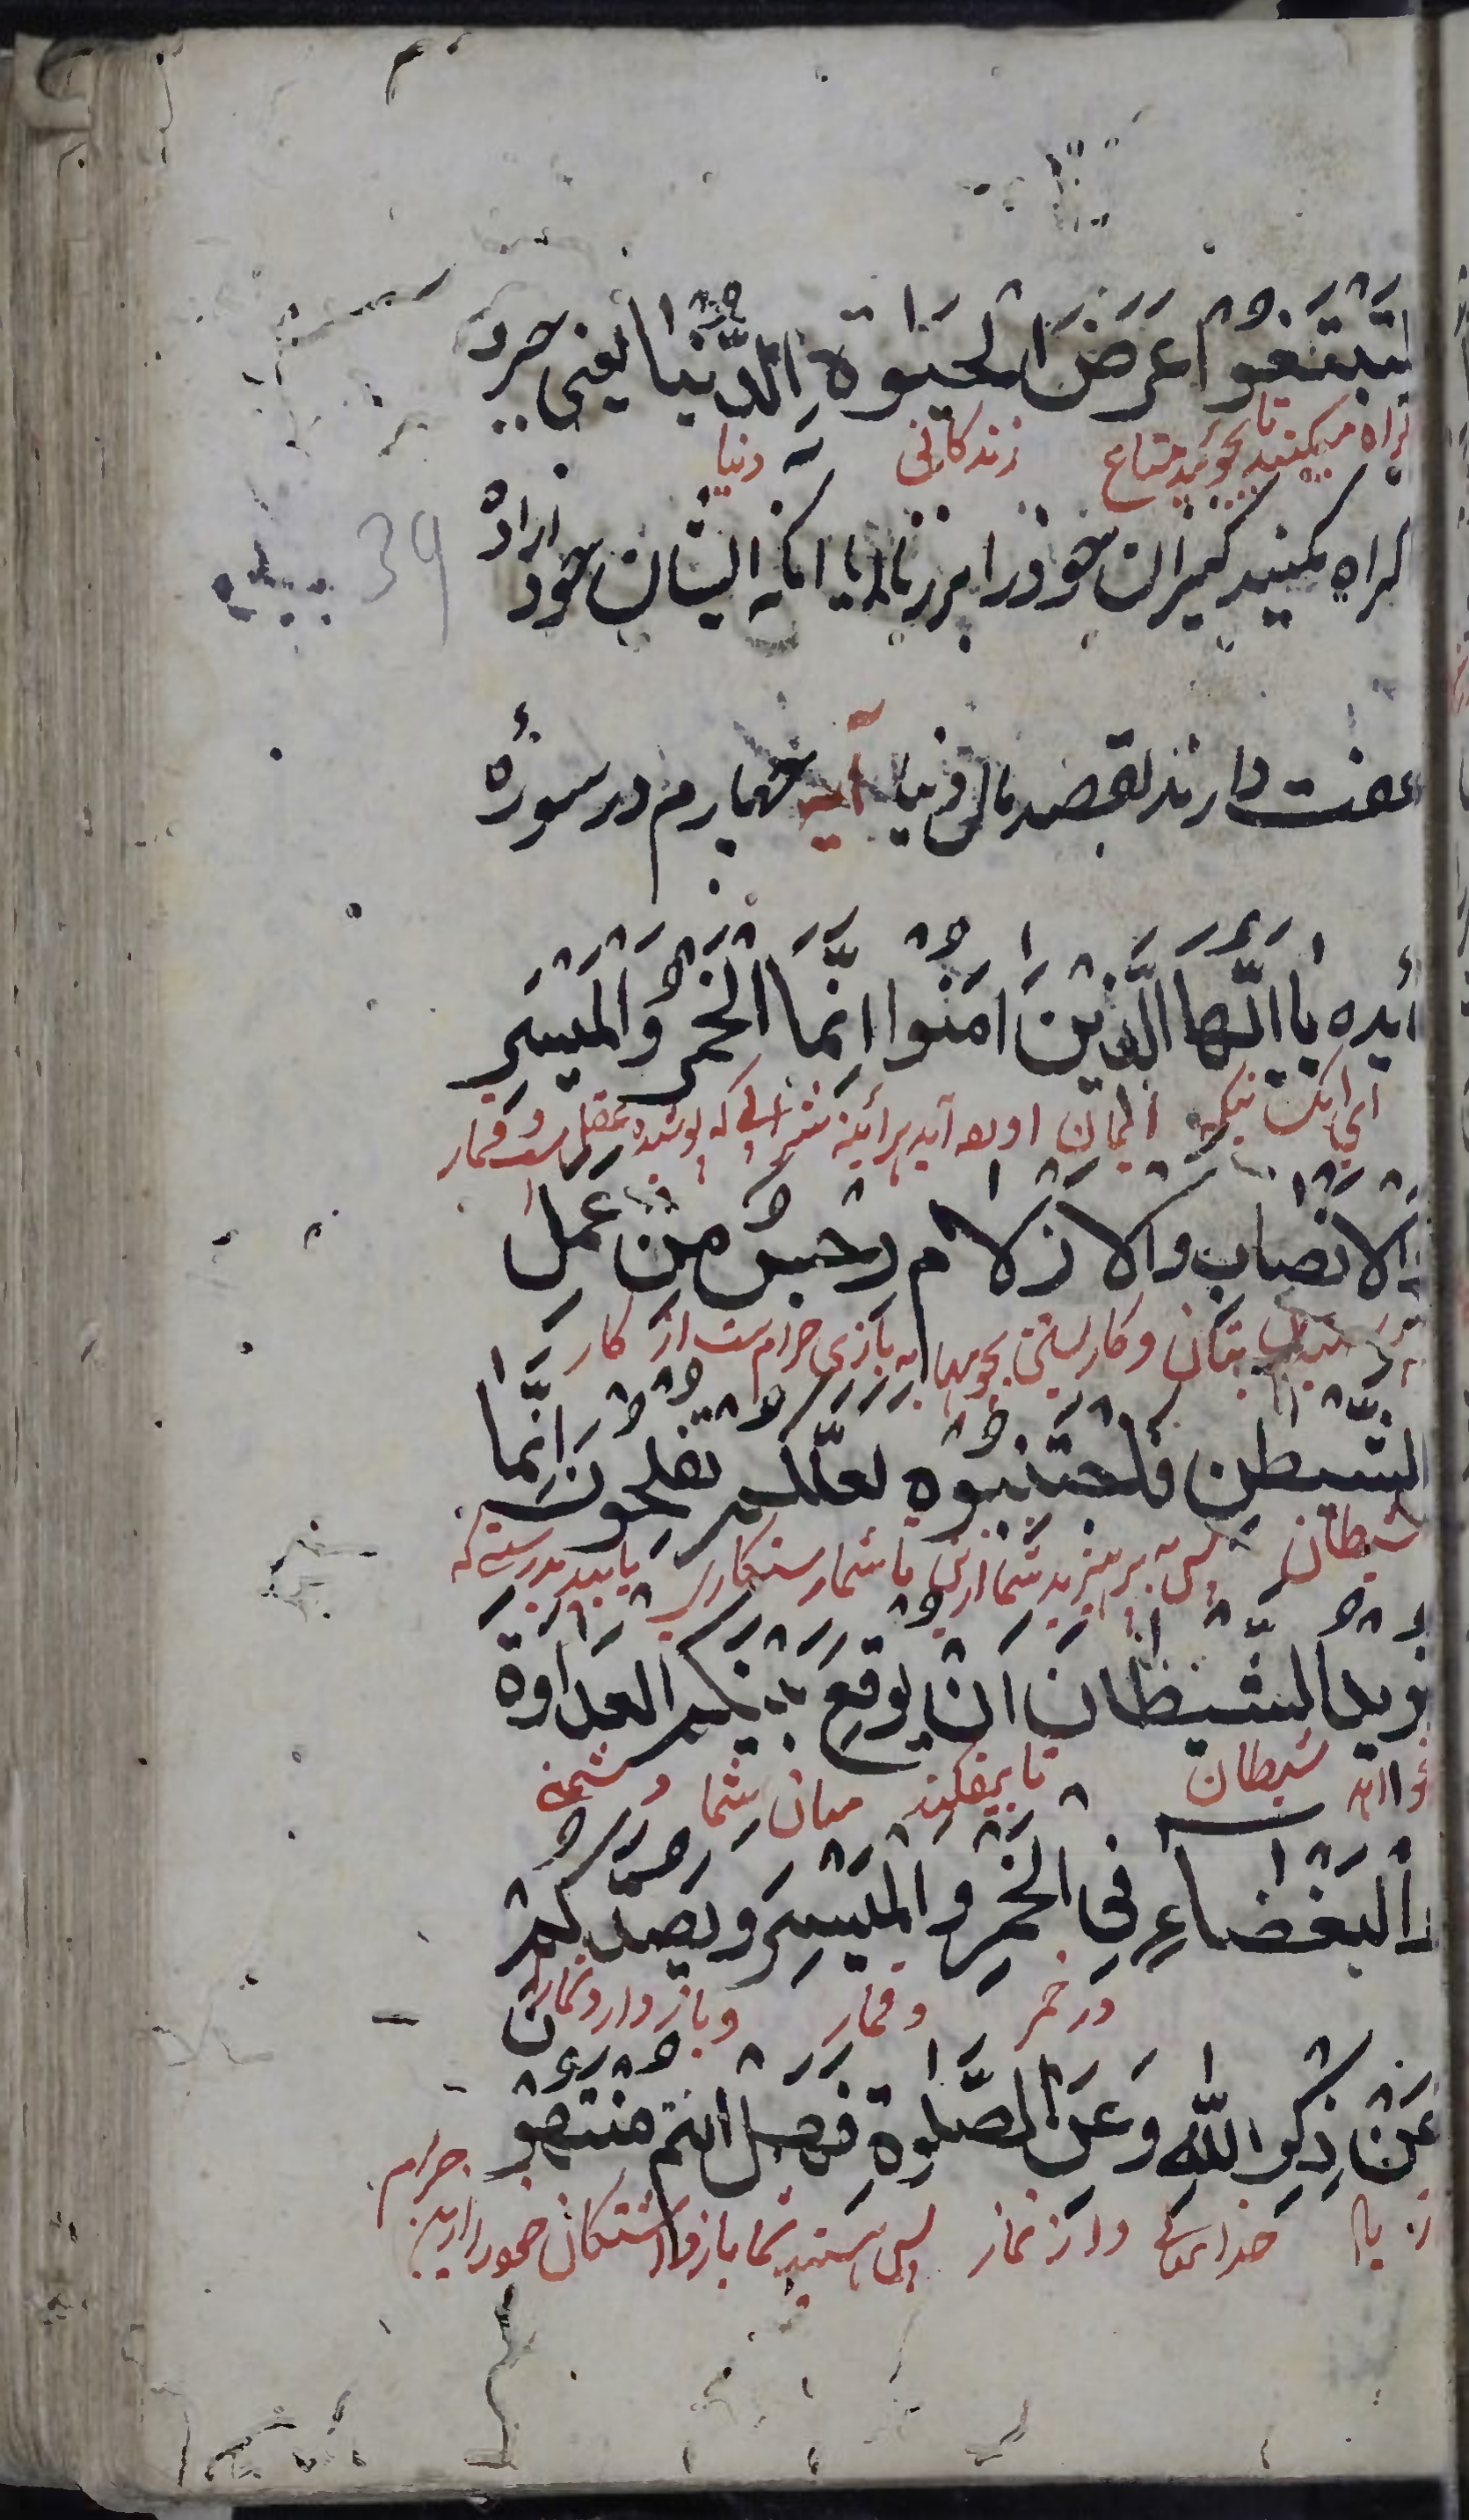 لتبتغوا عَرَضَ الحيوة الدُّنيا يعنى جبر و
اكراه ميكنيد تا بجوئيد متاع زندكانى دنيا
اكراه مكنيد كنيزان خود را بر زنا يا انكه ايشان خود اراده
39
عفت دارند بقصد مال دنيا آيه چهارم در سورۀ
مائده يا ايّها الَّذِيْنَ امَنُوا انَّمَا الْخَمْرُ وَالْمَيْسِرِ
اى آنكسانيكه ايمان آورده آيد هرآئينه شرابى كه پوشيده عقل است و قمار
وَالانْصَابِ والازلام رِجْسٌ مِنْ عَمَلِ
بتان و كار بستن بچوبها به بازى حرامست از كار
الشّيطن فَاجْتَنِبُوه لعلّكم تفلحون انَّما
شيطان پس به پرهيزيد شما ازين تا شما رستكارى يابيد بدرستى كه
يُرِيدُ الشَّيْطَانَ اَنْ يُوْقِعَ بَيْنَكم العداوة
خواهد شيطان تا بيفكند ميان شما دشمنى
وَالْبَغْضَاءِ فِى الْخَمْرِ وَالْمَيْسِرِ وَيَصُدَّكُمْ
در خمر و قمار و باز دارد شمارا
عَنْ ذِكْرِ اللّٰهِ وَعَنِ الصَّلوةِ فَهَلْ انتم مُنْتَهُوْن
از ياد خدايتعالى و از نماز پس هستيد شما باز داشتكان خود را ازين حرام